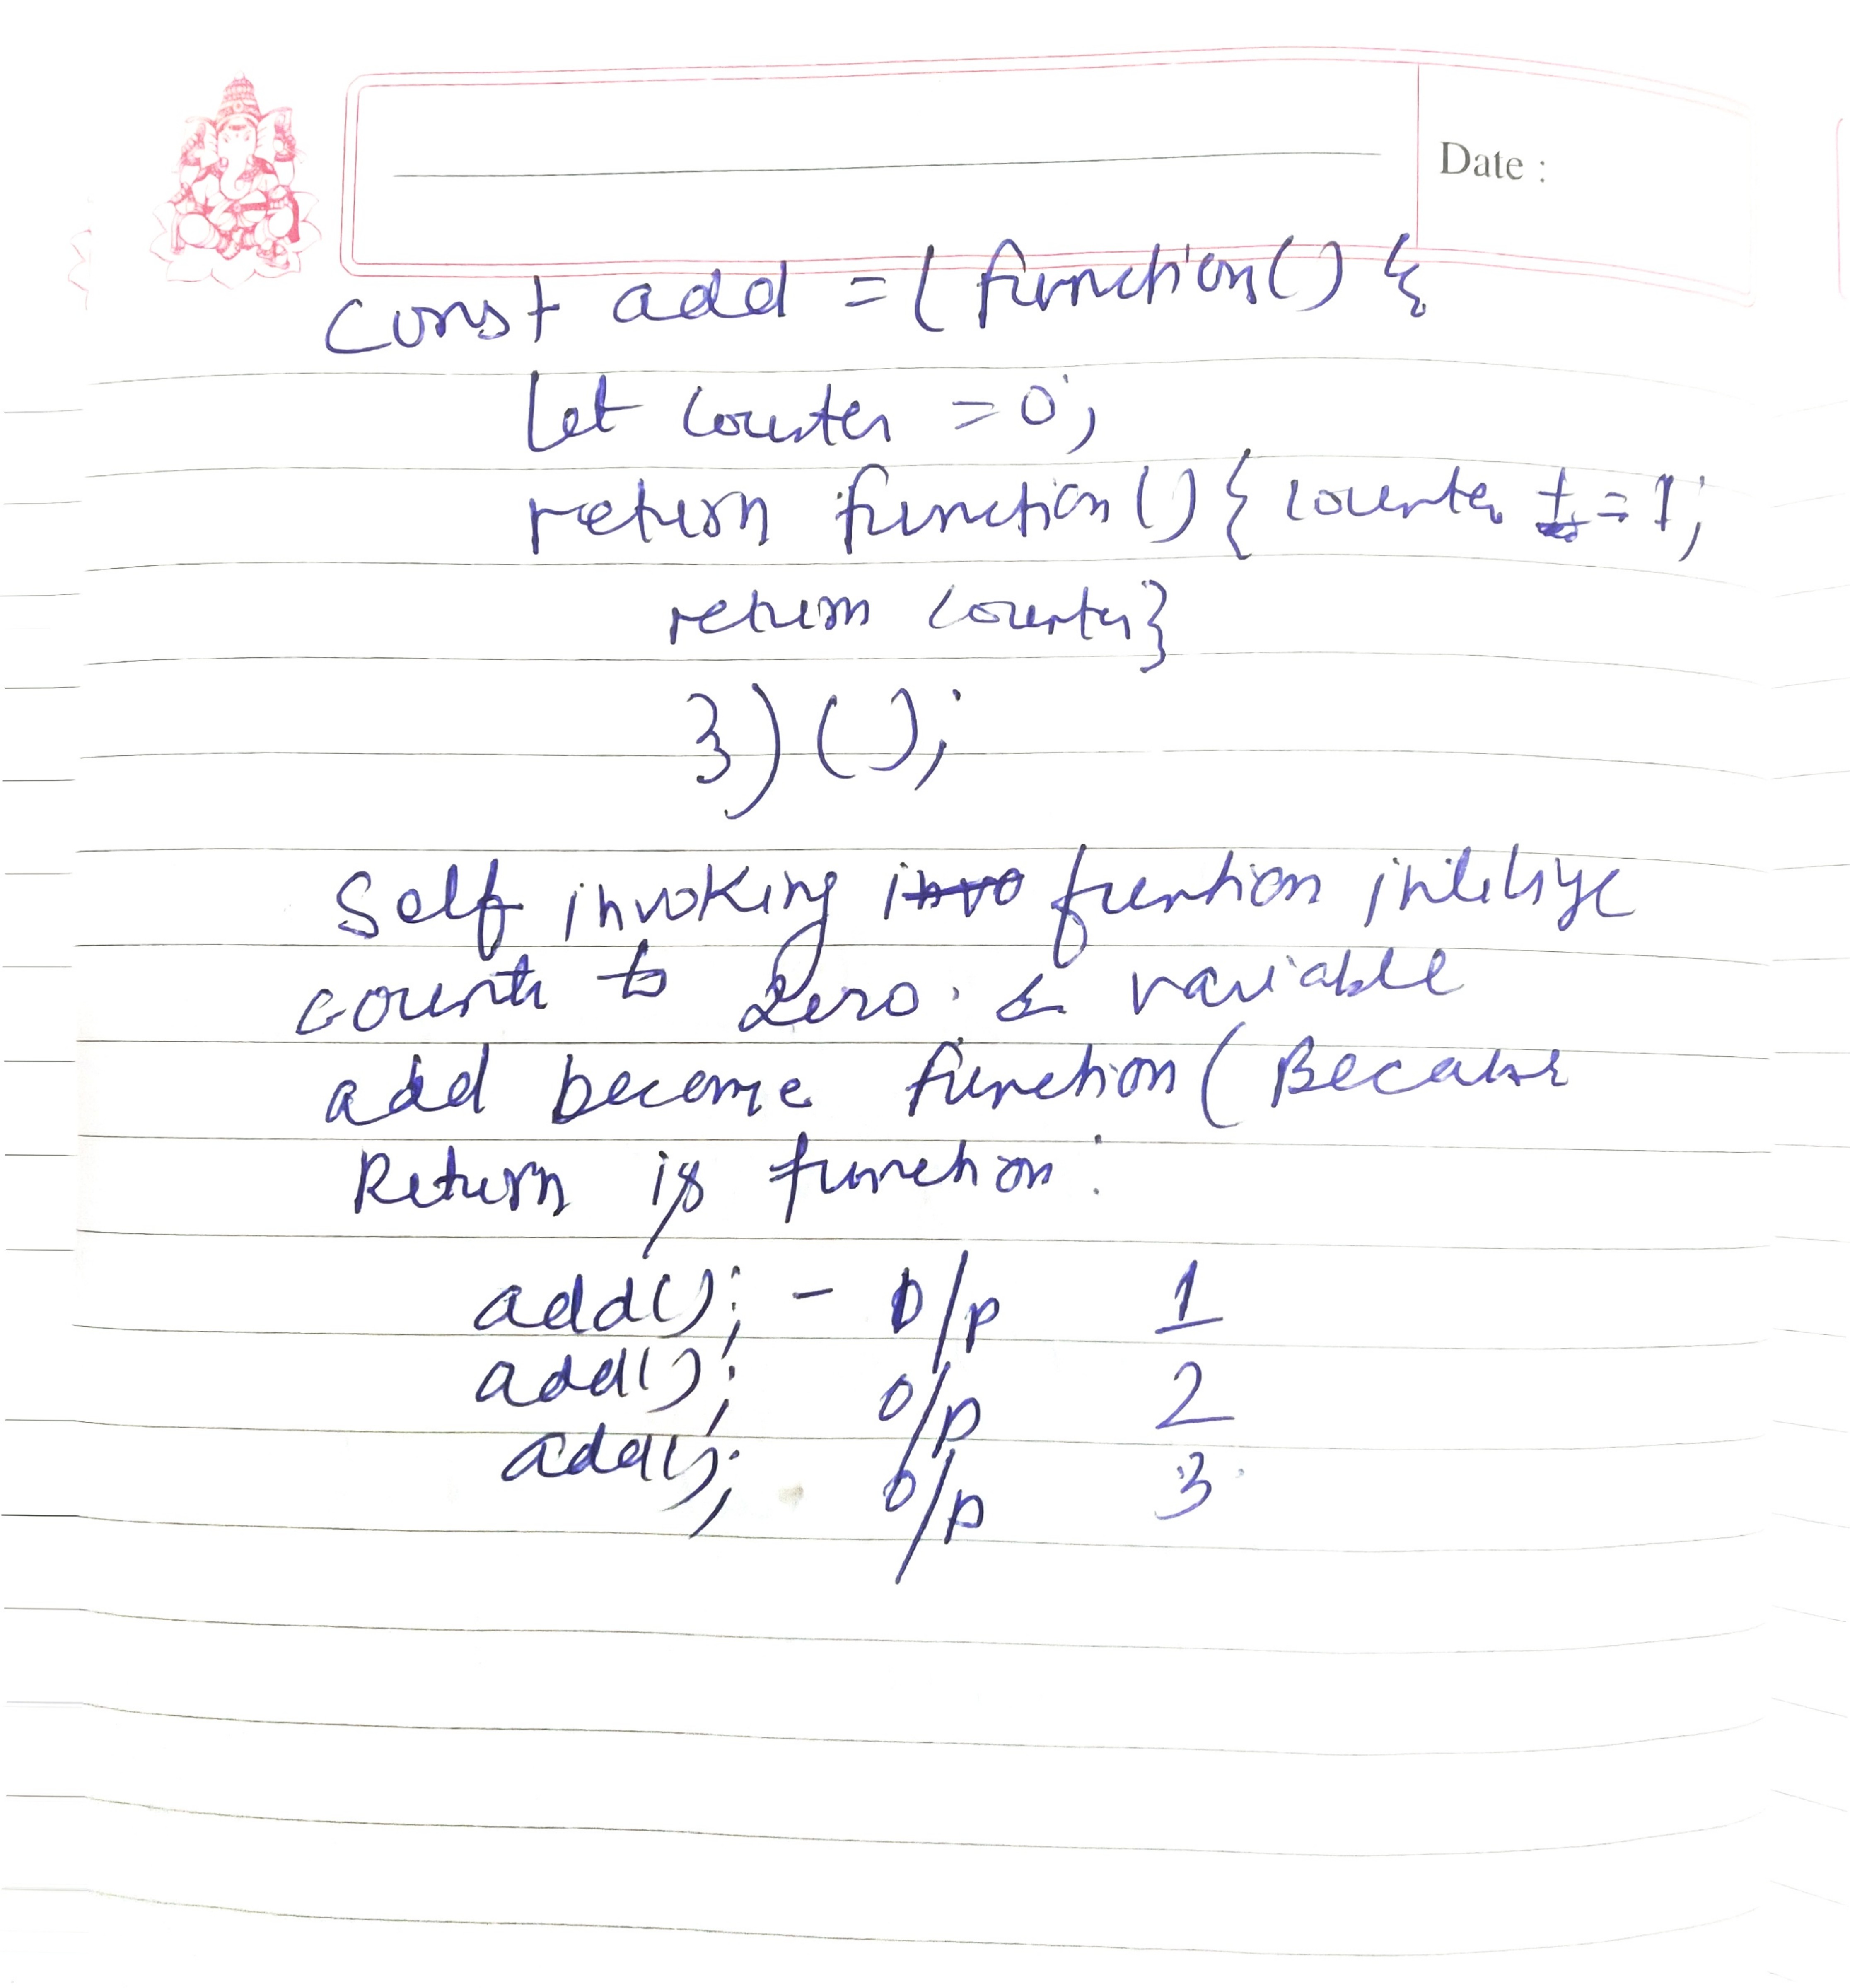 Date :
const add = ( function() {
let counter = 0;
return function() { counter += 1;
return counter}
})();
Self invoking function initilize
counter to zero. & variable
add become function (Because
Return is function.
add(); - O/p 1
add(); o/p 2
add(); o/p 3